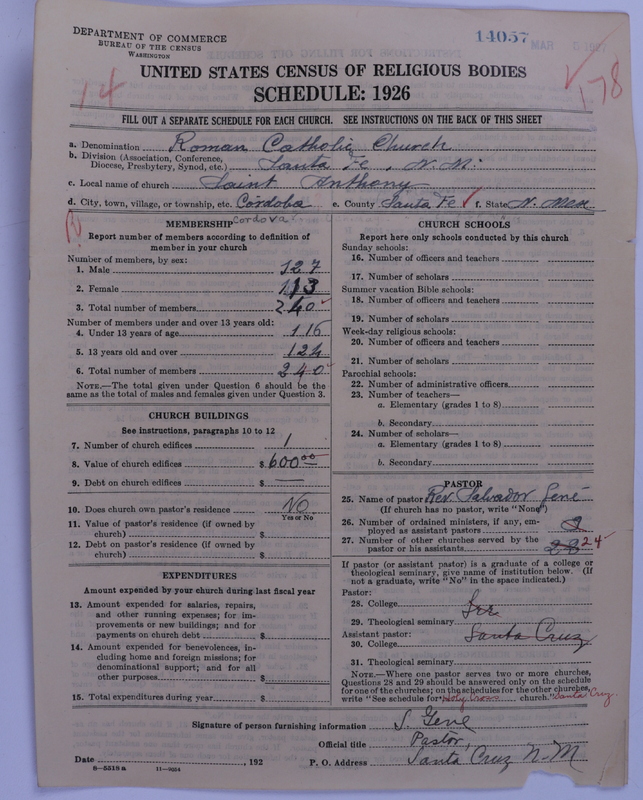 DEPARTMENT OF COMMERCE
BUREAU OF THE CENSUS
WASHINGTON
14057
MAR
14
178
UNITED STATES CENSUS OF RELIGIOUS BODIES
SCHEDULE: 1926
FILL OUT A SEPARATE SCHEDULE FOR EACH CHURCH. SEE INSTRUCTIONS ON THE BACK OF THIS SHEET
a. Denomination Roman Catholic Church
b. Division (Association, Conference, Diocese, Presbytery, Synod, etc.) Santa Fe, N.M.
c. Local name of church Saint Anthony
d. City, town, village, or township, etc. Córdoba e. County Santa Fe f. State N. Mex
Cordova
MEMBERSHIP
Report number of members according to definition of
member in your church
Number of members, by sex:
1. Male 127
2. Female 113
3. Total number of members 240
Number of members under and over 13 years old:
4. Under 13 years of age 116
5. 13 years old and over 124
6. Total number of members 240
NOTE.—The total given under Question 6 should be
same as the total of males and females given under Question 3.
CHURCH BUILDINGS
See instructions, paragraphs 10 to 12
7. Number of church edifices 1
8. Value of church edifices $600.00
9. Debt on church edifices $ —
10. Does church own pastor's residence NO
Yes or No
11. Value of pastor's residence (if owned by
church) $
12. Debt on pastor's residence (if owned by
church) $
EXPENDITURES
Amount expended by your church during last fiscal year
13. Amount expended for salaries, repairs,
and other running expenses; for im-
provements or new buildings; and for
payments on church debt $
14. Amount expended for benevolences, in-
cluding home and foreign missions; for
denominational support; and for all
other purposes $
15. Total expenditures during year $
CHURCH SCHOOLS
Report here only schools conducted by this church
Sunday schools:
16. Number of officers and teachers
17. Number of scholars
Summer vacation Bible schools:
18. Number of officers and teachers
19. Number of scholars
Week-day religious schools:
20. Number of officers and teachers
21. Number of scholars
Parochial schools:
22. Number of administrative officers
23. Number of teachers—
a. Elementary (grades 1 to 8)
b. Secondary
24. Number of scholars—
a. Elementary (grades 1 to 8)
b. Secondary
PASTOR
25. Name of pastor Rev. Salvador Gené
(If church has no pastor, write "None")
26. Number of ordained ministers, if any, em-
ployed as assistant pastors
27. Number of other churches served by the
pastor or his assistants 24
If pastor (or assistant pastor) is a graduate of a college or
theological seminary, give name of institution below. (If
not a graduate, write "No" in the space indicated.)
Pastor:
28. College See
29. Theological seminary
Santa Cruz
Assistant pastor:
30. College
31. Theological seminary
NOTE.—Where one pastor serves two or more churches,
Questions 28 and 29 should be answered only on the schedule
for one of the churches; on the schedules for the other churches,
write "See schedule for Holy Cross church." Santa Cruz.
Signature of person furnishing information S. Gene
Official title Pastor,
Date , 192 P. O. Address Santa Cruz N-M
8-5518a 11-9054